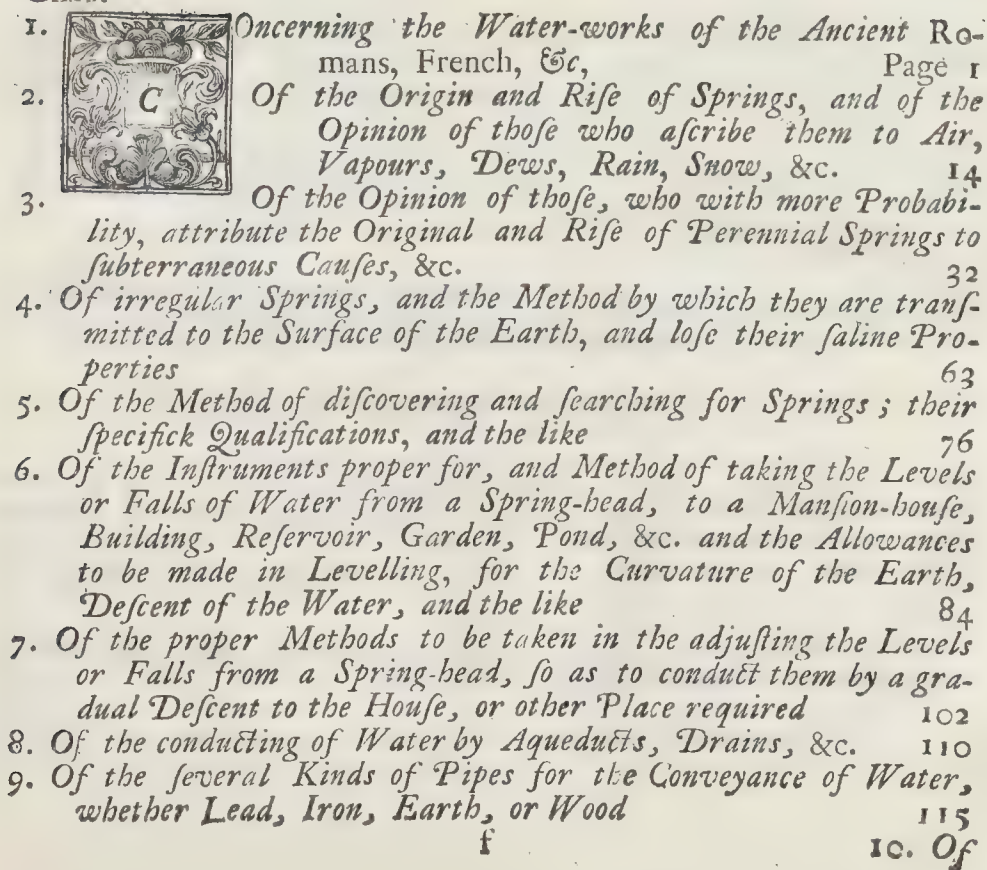 1. COncerning the Water-works of the Ancient Ro-
mans, French, &c, Page 1
2. Of the Origin and Riſe of Springs, and of the
Opinion of thoſe who aſcribe them to Air,
Vapours, Dews, Rain, Snow, &c. 14
3. Of the Opinion of thoſe, who with more Probabi-
lity, attribute the Original and Riſe of Perennial Springs to
ſubterraneous Cauſes, &c. 32
4. Of irregular Springs, and the Method by which they are tranſ-
mitted to the Surface of the Earth, and loſe their ſaline Pro-
perties 63
5. Of the Method of diſcovering and ſearching for Springs; their
ſpecifick Qualifications, and the like 76
6. Of the Inſtruments proper for, and Method of taking the Levels
or Falls of Water from a Spring-head, to a Manſion-houſe,
Building, Reſervoir, Garden, Pond, &c. and the Allowances
to be made in Levelling, for the Curvature of the Earth,
Deſcent of the Water, and the like 84
7. Of the proper Methods to be taken in the adjuſting the Levels
or Falls from a Spring-head, ſo as to conduct them by a gra-
dual Deſcent to the Houſe, or other Place required 102
8. Of the conducting of Water by Aqueducts, Drains, &c. 110
9. Of the ſeveral Kinds of Pipes for the Conveyance of Water,
whether Lead, Iron, Earth, or Wood 115
f 10. Of